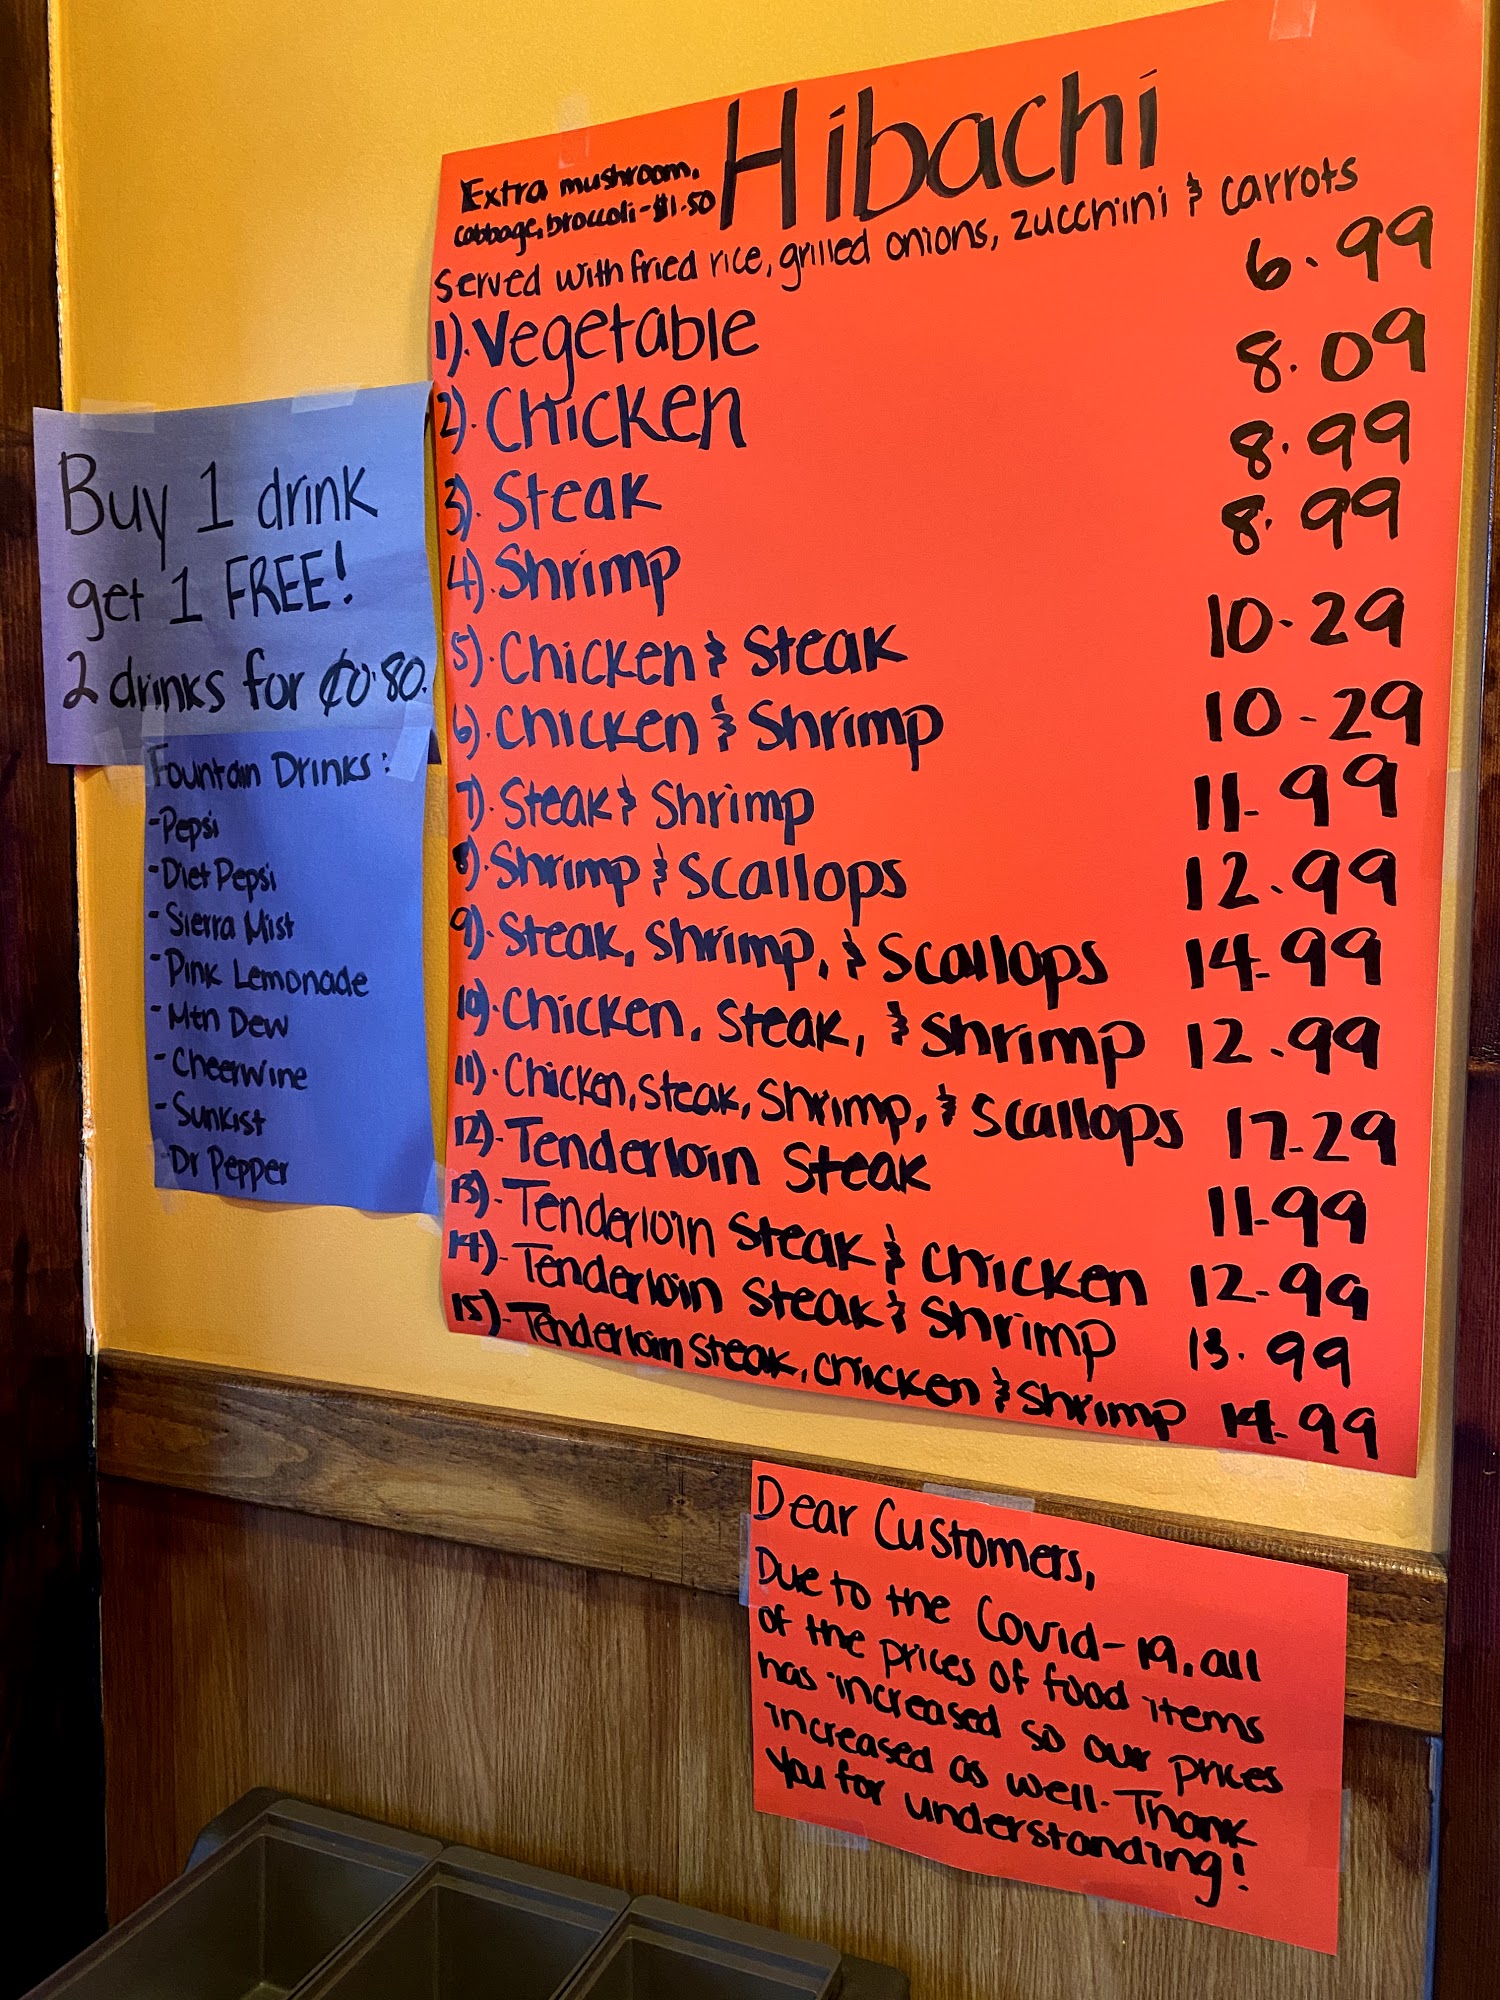 Hibachi
Extra mushroom,
cabbage, broccoli - $1.50
Served with fried rice, grilled onions, zucchini & carrots
1). Vegetable 6.99
2). Chicken 8.09
3). Steak 8.99
4). Shrimp 8.99
5). Chicken & Steak 10.29
6). Chicken & Shrimp 10-29
7). Steak & Shrimp 11.99
8). Shrimp & Scallops 12.99
9). Steak, Shrimp, & Scallops 14.99
10). Chicken, Steak, & Shrimp 12.99
11). Chicken, Steak, Shrimp, & Scallops 17.29
12). Tenderloin Steak 11.99
13). Tenderloin Steak & Chicken 12.99
14). Tenderloin Steak & Shrimp 13.99
15). Tenderloin Steak, Chicken & Shrimp 14.99
Buy 1 drink
get 1 FREE!
2 drinks for ¢0.80.
Fountain Drinks:
-Pepsi
-Diet Pepsi
-Sierra Mist
-Pink Lemonade
-Mtn Dew
-Cheerwine
-Sunkist
-Dr Pepper
Dear Customers,
Due to the Covid-19, all
of the prices of food items
has increased so our prices
increased as well. Thank
you for understanding!